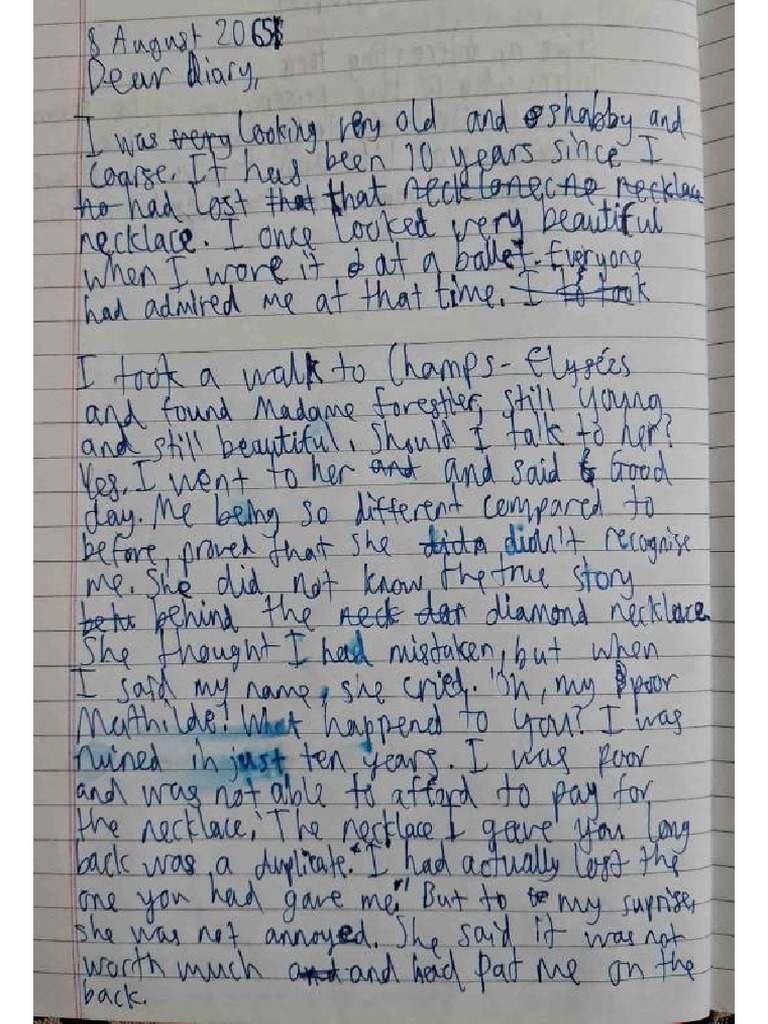 8 August 2065
Dear Diary,
I was very looking very old and shabby and
coarse. It has been 10 years since I
to had lost that that necklace
necklace. I once looked very beautiful
when I wore it at a ballet. Everyone
had admired me at that time. I to took
I took a walk to Champs-Elysées
and found Madame Forestier, still young
and still beautiful. Should I talk to her?
Yes. I went to her and and said Good
day. Me being so different compared to
before, proved that she didn didn't recognise
me. She did not know the true story
behind the neck diamond necklace.
She thought I had mistaken, but when
I said my name, she cried. "Oh, my poor
Mathilde! What happened to you? I was
ruined in just ten years. I was poor
and was not able to afford to pay for
the necklace. "The necklace I gave you long
back was a duplicate." "I had actually lost the
one you had gave me." But to my suprise,
she was not annoyed. She said it was not
worth much and and had pat me on the
back.